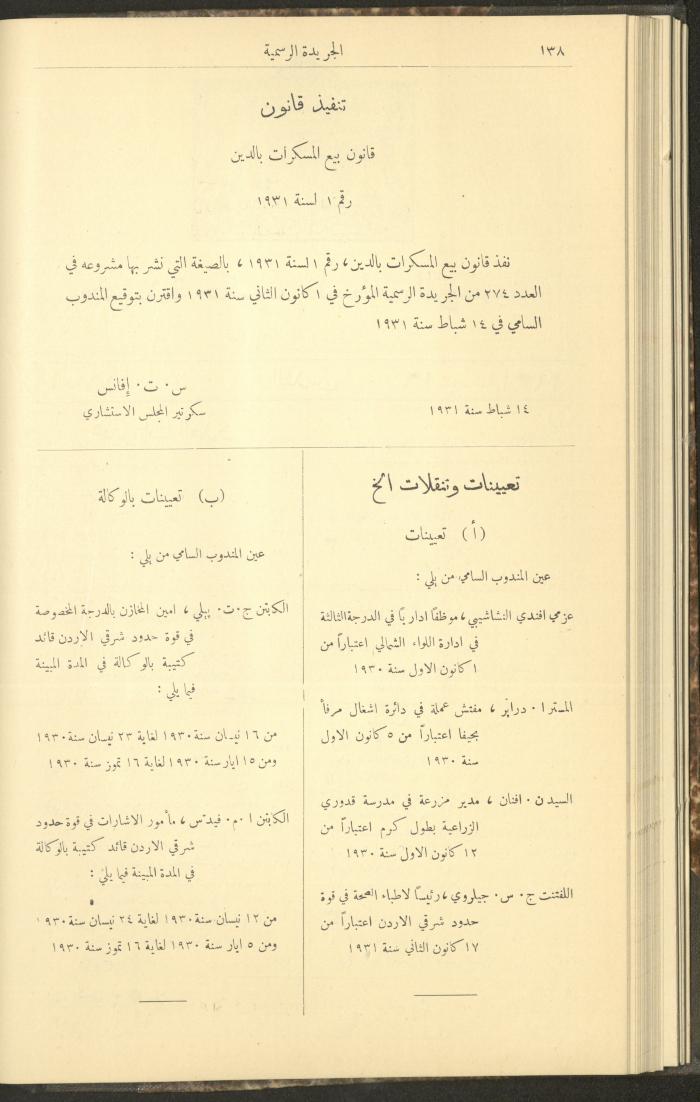 ١٣٨
الجريدة الرسمية
تنفيذ قانون
قانون بيع المسكرات بالدين
رقم ١ لسنة ١٩٣١
نفذ قانون بيع المسكرات بالدين، رقم ١ لسنة ١٩٣١، بالصيغة التي نشر بها مشروعه في
العدد ٢٧٤ من الجريدة الرسمية المؤرخ في ١ كانون الثاني سنة ١٩٣١ واقترن بتوقيع المندوب
السامي في ١٤ شباط سنة ١٩٣١
س٠ ت٠ إفانس
١٤ شباط سنة ١٩٣١
سكرتير المجلس الاستشاري
تعيينات وتنقلات الخ
(أ) تعيينات
عين المندوب السامي من يلي :
عزمي افندي النشاشيبي، موظفاً ادارياً في الدرجة الثالثة
في ادارة اللواء الشمالي اعتباراً من
١ كانون الاول سنة ١٩٣٠
المستر ا٠ درابر، مفتش عملة في دائرة اشغال مرفأ
بحيفا اعتباراً من ٥ كانون الاول
سنة ١٩٣٠
السيد ن٠ افنان، مدير مزرعة في مدرسة قدوري
الزراعية بطول كرم اعتباراً من
١٢ كانون الاول سنة ١٩٣٠
اللفتنت ج٠ س٠ جيلروي، رئيساً لاطباء الصحة في قوة
حدود شرقي الاردن اعتباراً من
١٧ كانون الثاني سنة ١٩٣١
(ب) تعيينات بالوكالة
عين المندوب السامي من يلي :
الكابتن ج٠ت٠ پيلي، امين المخازن بالدرجة المخصوصة
في قوة حدود شرقي الاردن قائد
كتيبة بالوكالة في المدة المبينة
فيما يلي :
من ١٦ نيسان سنة ١٩٣٠ لغاية ٢٣ نيسان سنة ١٩٣٠
ومن ١٥ ايار سنة ١٩٣٠ لغاية ١٦ تموز سنة ١٩٣٠
الكابتن ا٠م٠ فيدتس، مأمور الاشارات في قوة حدود
شرقي الاردن قائد كتيبة بالوكالة
في المدة المبينة فيما يلي :
من ١٢ نيسان سنة ١٩٣٠ لغاية ٢٤ نيسان سنة ١٩٣٠
ومن ٥ ايار سنة ١٩٣٠ لغاية ١٦ تموز سنة ١٩٣٠